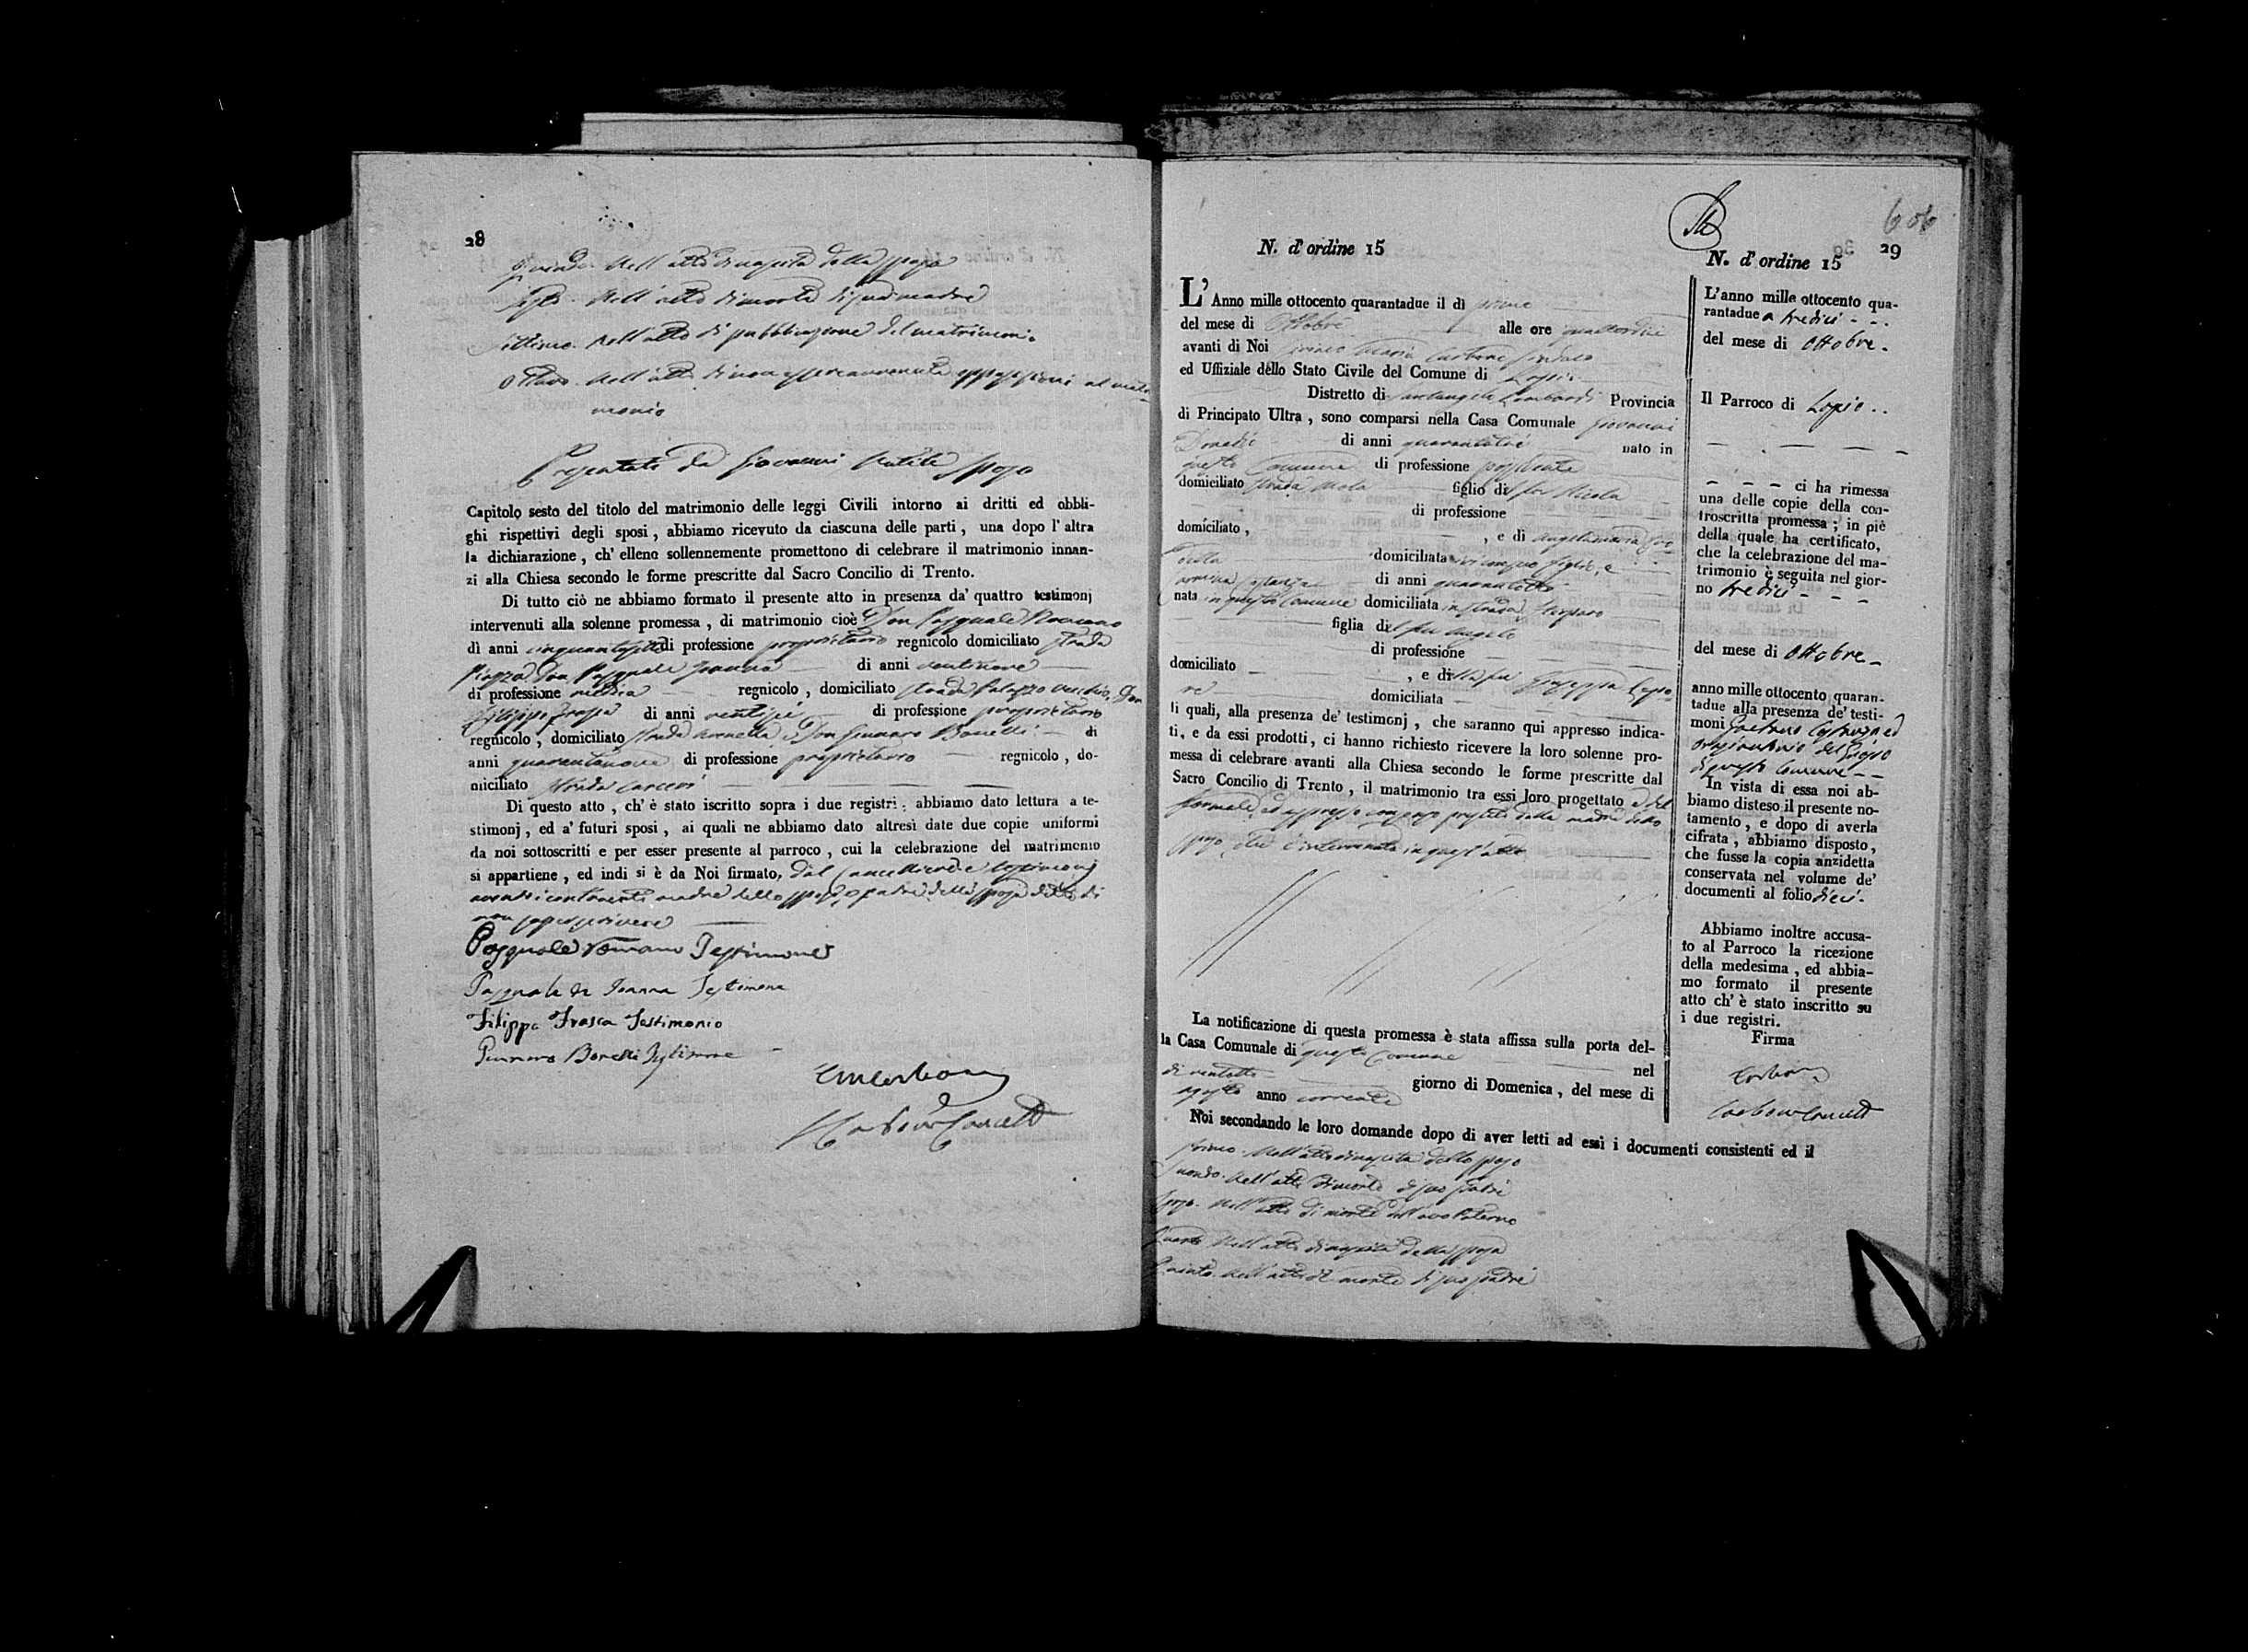 28
nell'atto di nascita della sposa
nell'atto di morte di sua madre
Settimo. Nell'atto di pubblicazione del matrimonio
Ottavo. Nell'atto di non essere avvenuta opposizioni al matri-
monio
Presentato da Giovanni sposo
Capitolo sesto del titolo del matrimonio delle leggi Civili intorno ai dritti ed obbli-
ghi rispettivi degli sposi, abbiamo ricevuto da ciascuna delle parti, una dopo l'altra
la dichiarazione, ch'elleno sollennemente promettono di celebrare il matrimonio innan-
zi alla Chiesa secondo le forme prescritte dal Sacro Concilio di Trento.
Di tutto ciò ne abbiamo formato il presente atto in presenza da' quattro testimonj
intervenuti alla solenne promessa, di matrimonio cioè Don Pasquale Romano
di anni cinquantasette di professione proprietario regnicolo domiciliato strada
Piazza Don Pasquale Ioanna di anni ventinove
di professione medico regnicolo, domiciliato strada Palazzo vecchio, Don
Filippo Frasca di anni ventisei di professione proprietario
regnicolo, domiciliato strada e Don Gennaro Bonelli di
anni quarantanove di professione proprietario regnicolo, do-
miciliato strada Carceri
Di questo atto, ch'è stato iscritto sopra i due registri: abbiamo dato lettura a te-
stimonj, ed a' futuri sposi, ai quali ne abbiamo dato altresì date due copie uniformi
da noi sottoscritti e per esser presente al parroco, cui la celebrazione del matrimonio
si appartiene, ed indi si è da Noi firmato, dal Cancelliere e testimonj
avendo i contraenti madre dello sposo, e padre della sposa detto di
non saper scrivere
Pasquale Romano Testimone
Pasquale de Ioanna Testimone
Filippo Frasca Testimonio
Gennaro Bonelli Testimone
CMCarbone
Carbone Cancell
606
N. d'ordine 15
29
L'Anno mille ottocento quarantadue il dì primo
del mese di Ottobre alle ore quattordici
avanti di Noi Maria Carbone Sindaco
ed Uffiziale dello Stato Civile del Comune di Lapio
Distretto di Santangelo Lombardi Provincia
di Principato Ultra, sono comparsi nella Casa Comunale Giovanni
di anni nato in
questo Comune di professione
domiciliato strada figlio del fu Nicola
di professione
domiciliato, , e di Angelamaria
domiciliata
Costanza di anni quarantotto
nata in questo Comune domiciliata in strada
figlia del fu Angelo
di professione
domiciliato , e della fu Giuseppa
re domiciliata
li quali, alla presenza de' testimonj, che saranno qui appresso indica-
ti, e da essi prodotti, ci hanno richiesto ricevere la loro solenne pro-
messa di celebrare avanti alla Chiesa secondo le forme prescritte dal
Sacro Concilio di Trento, il matrimonio tra essi loro progettato e del
formale, ed espresso consenso prestato dalla madre dello
sposo, che è intervenuta in quest'atto
La notificazione di questa promessa è stata affissa sulla porta del-
la Casa Comunale di questo Comune nel
dì ventotto giorno di Domenica, del mese di
agosto anno corrente
Noi secondando le loro domande dopo di aver letti ad essi i documenti consistenti ed il
Primo. Nell'atto di nascita dello sposo
Secondo. Nell'atto di morte di suo padre
Terzo. Nell'atto di morte dell'avo Paterno
Quarto Nell'atto di nascita della sposa
Quinto. Nell'atto di morte di suo padre
N. d'ordine 15
L'anno mille ottocento qua-
rantadue a tredici
del mese di Ottobre
Il Parroco di Lapio
ci ha rimessa
una delle copie della con-
troscritta promessa; in piè
della quale ha certificato,
che la celebrazione del ma-
trimonio è seguita nel gior-
no tredici
del mese di Ottobre
anno mille ottocento quaran-
tadue alla presenza de' testi-
moni Gaetano Costanza ed
di questo Comune
In vista di essa noi ab-
biamo disteso il presente no-
tamento, e dopo di averla
cifrata, abbiamo disposto,
che fusse la copia anzidetta
conservata nel volume de'
documenti al folio dieci
Abbiamo inoltre accusa-
to al Parroco la ricezione
della medesima, ed abbia-
mo formato il presente
atto ch'è stato inscritto su
i due registri.
Firma
Carbone
Carbone Cancell